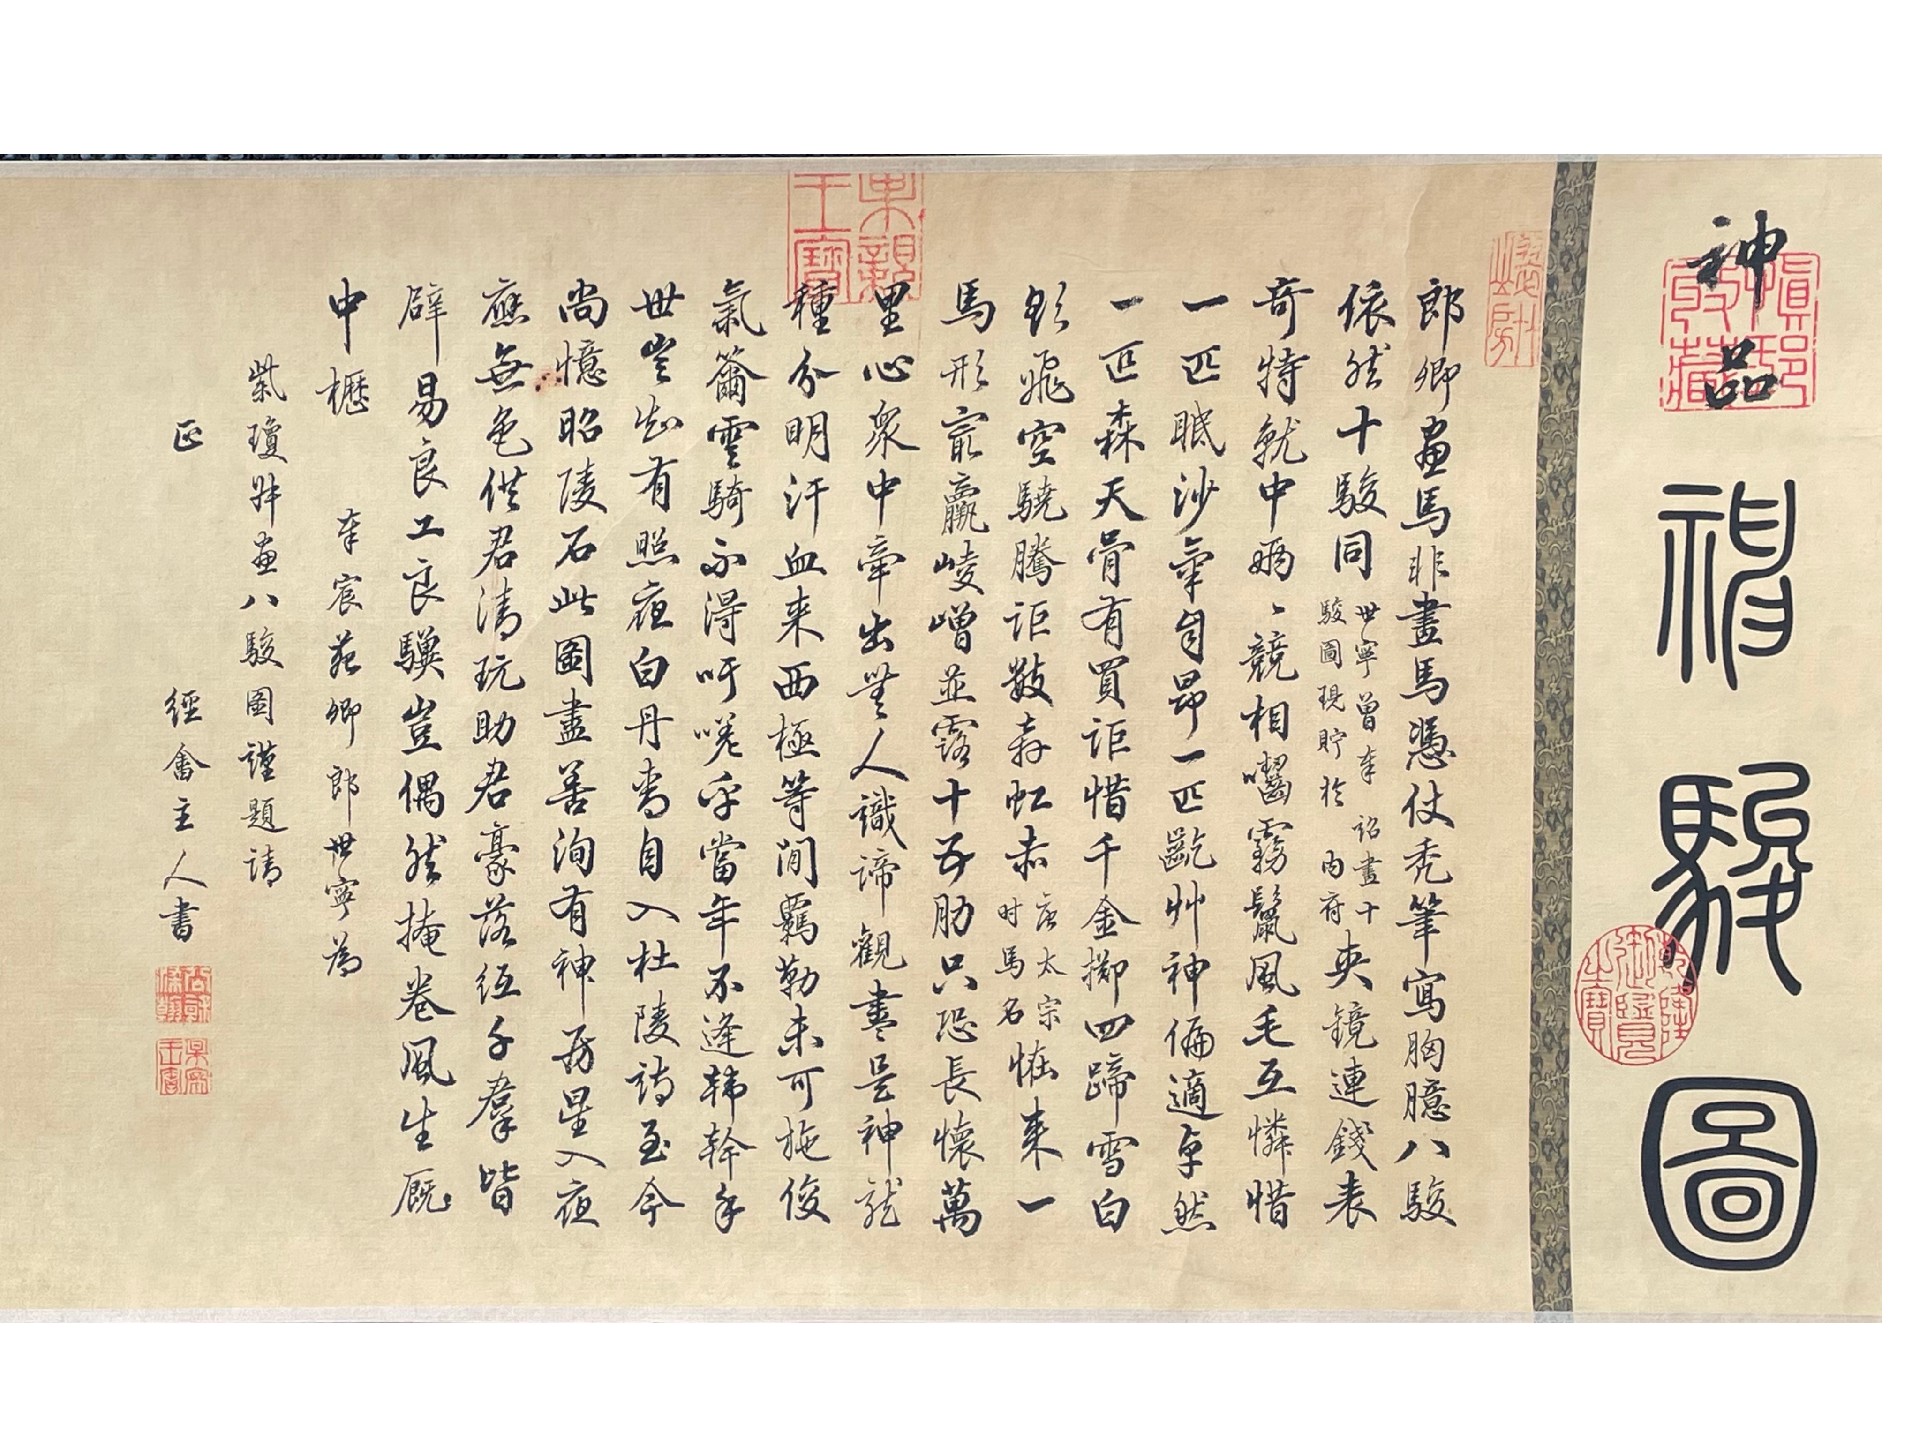 神品
神駿圖
郎卿畫馬非畫馬憑仗禿筆寫胸臆八駿
依然十駿同世寧曾奉詔畫十駿圖現貯於內府夾鏡連錢表
奇特就中兩〻競相囓霧鬣風毛互憐惜
一匹眠沙氣自昂一匹齕艸神偏適卓然
一匹森天骨有買詎惜千金擲四蹄雪白
飛空驍騰詎數奔虹赤唐太宗时馬名恠来一
馬形最羸崚嶒並露十五肋只恐長懷萬
里心衆中牽出無人識諦觀盡是神龍
種分明汗血来西極等閒羈勒未可施俊
氣籋雲騎不得吁嗟乎當年不逢韩幹手
世豈知有照夜白丹青自入杜陵詩至今
尚憶昭陵石此圖盡善洵有神房星入夜
應無色供君清玩助君豪落紙千羣皆
辟易良工良驥豈偶然掩卷風生厩
中櫪　奉宸苑卿郎世寧為
紫瓊叔畫八駿圖謹題請
正　經畬主人書
乾隆御覽之寶
果親王寶